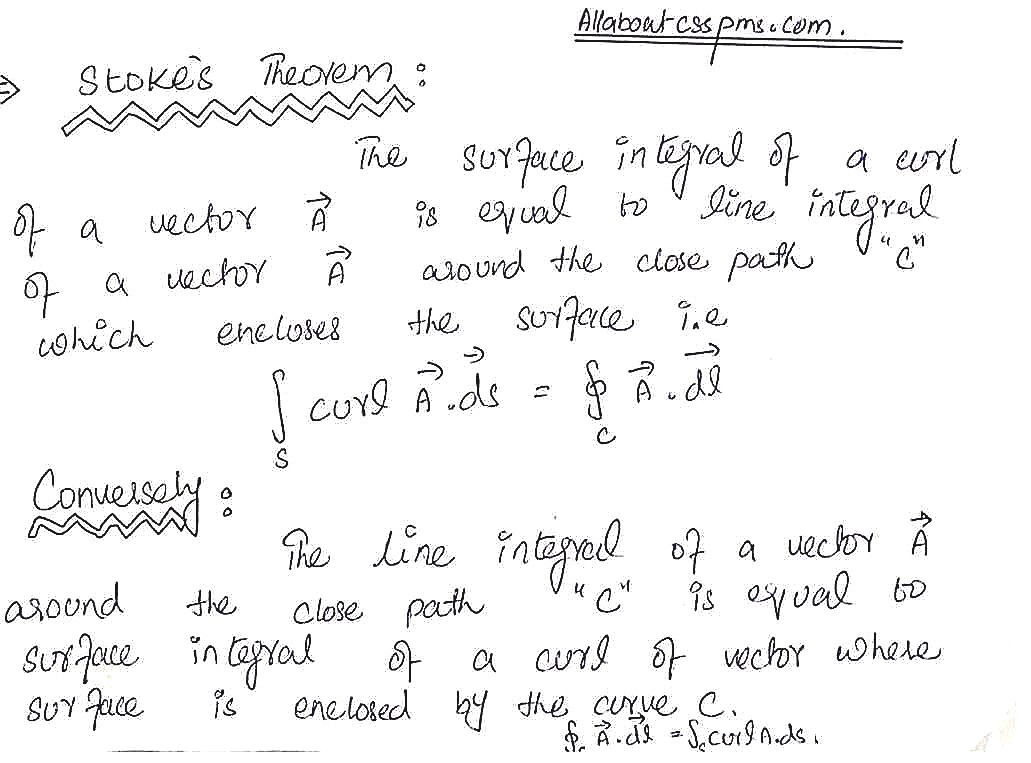 Allaboutcsspms.com.
⇒ Stoke's Theorem :
The surface integral of a curl
of a vector A⃗ is equal to line integral
of a vector A⃗ around the close path "C"
which encloses the surface i.e
∫_S curl A⃗ . ds⃗ = ∮_C A⃗ . dl⃗
Conversely :
The line integral of a vector A⃗
around the close path "C" is equal to
surface integral of a curl of vector where
surface is enclosed by the curve C.
∮_C A⃗ . dl⃗ = ∫_S curl A . ds .